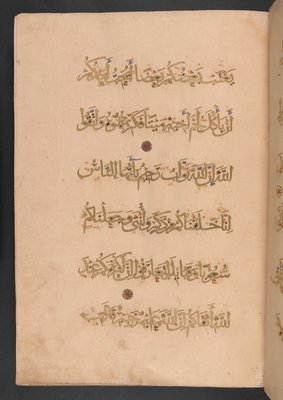 يغتب بعضكم بعضا أيحب أحدكم
أن يأكل لحم أخيه ميتا فكرهتموه واتقوا
الله إن الله تواب رحيم يا أيها الناس
إنا خلقناكم من ذكر وأنثى وجعلناكم
شعوبا وقبائل لتعارفوا إن أكرمكم عند
الله أتقاكم إن الله عليم خبير قالت